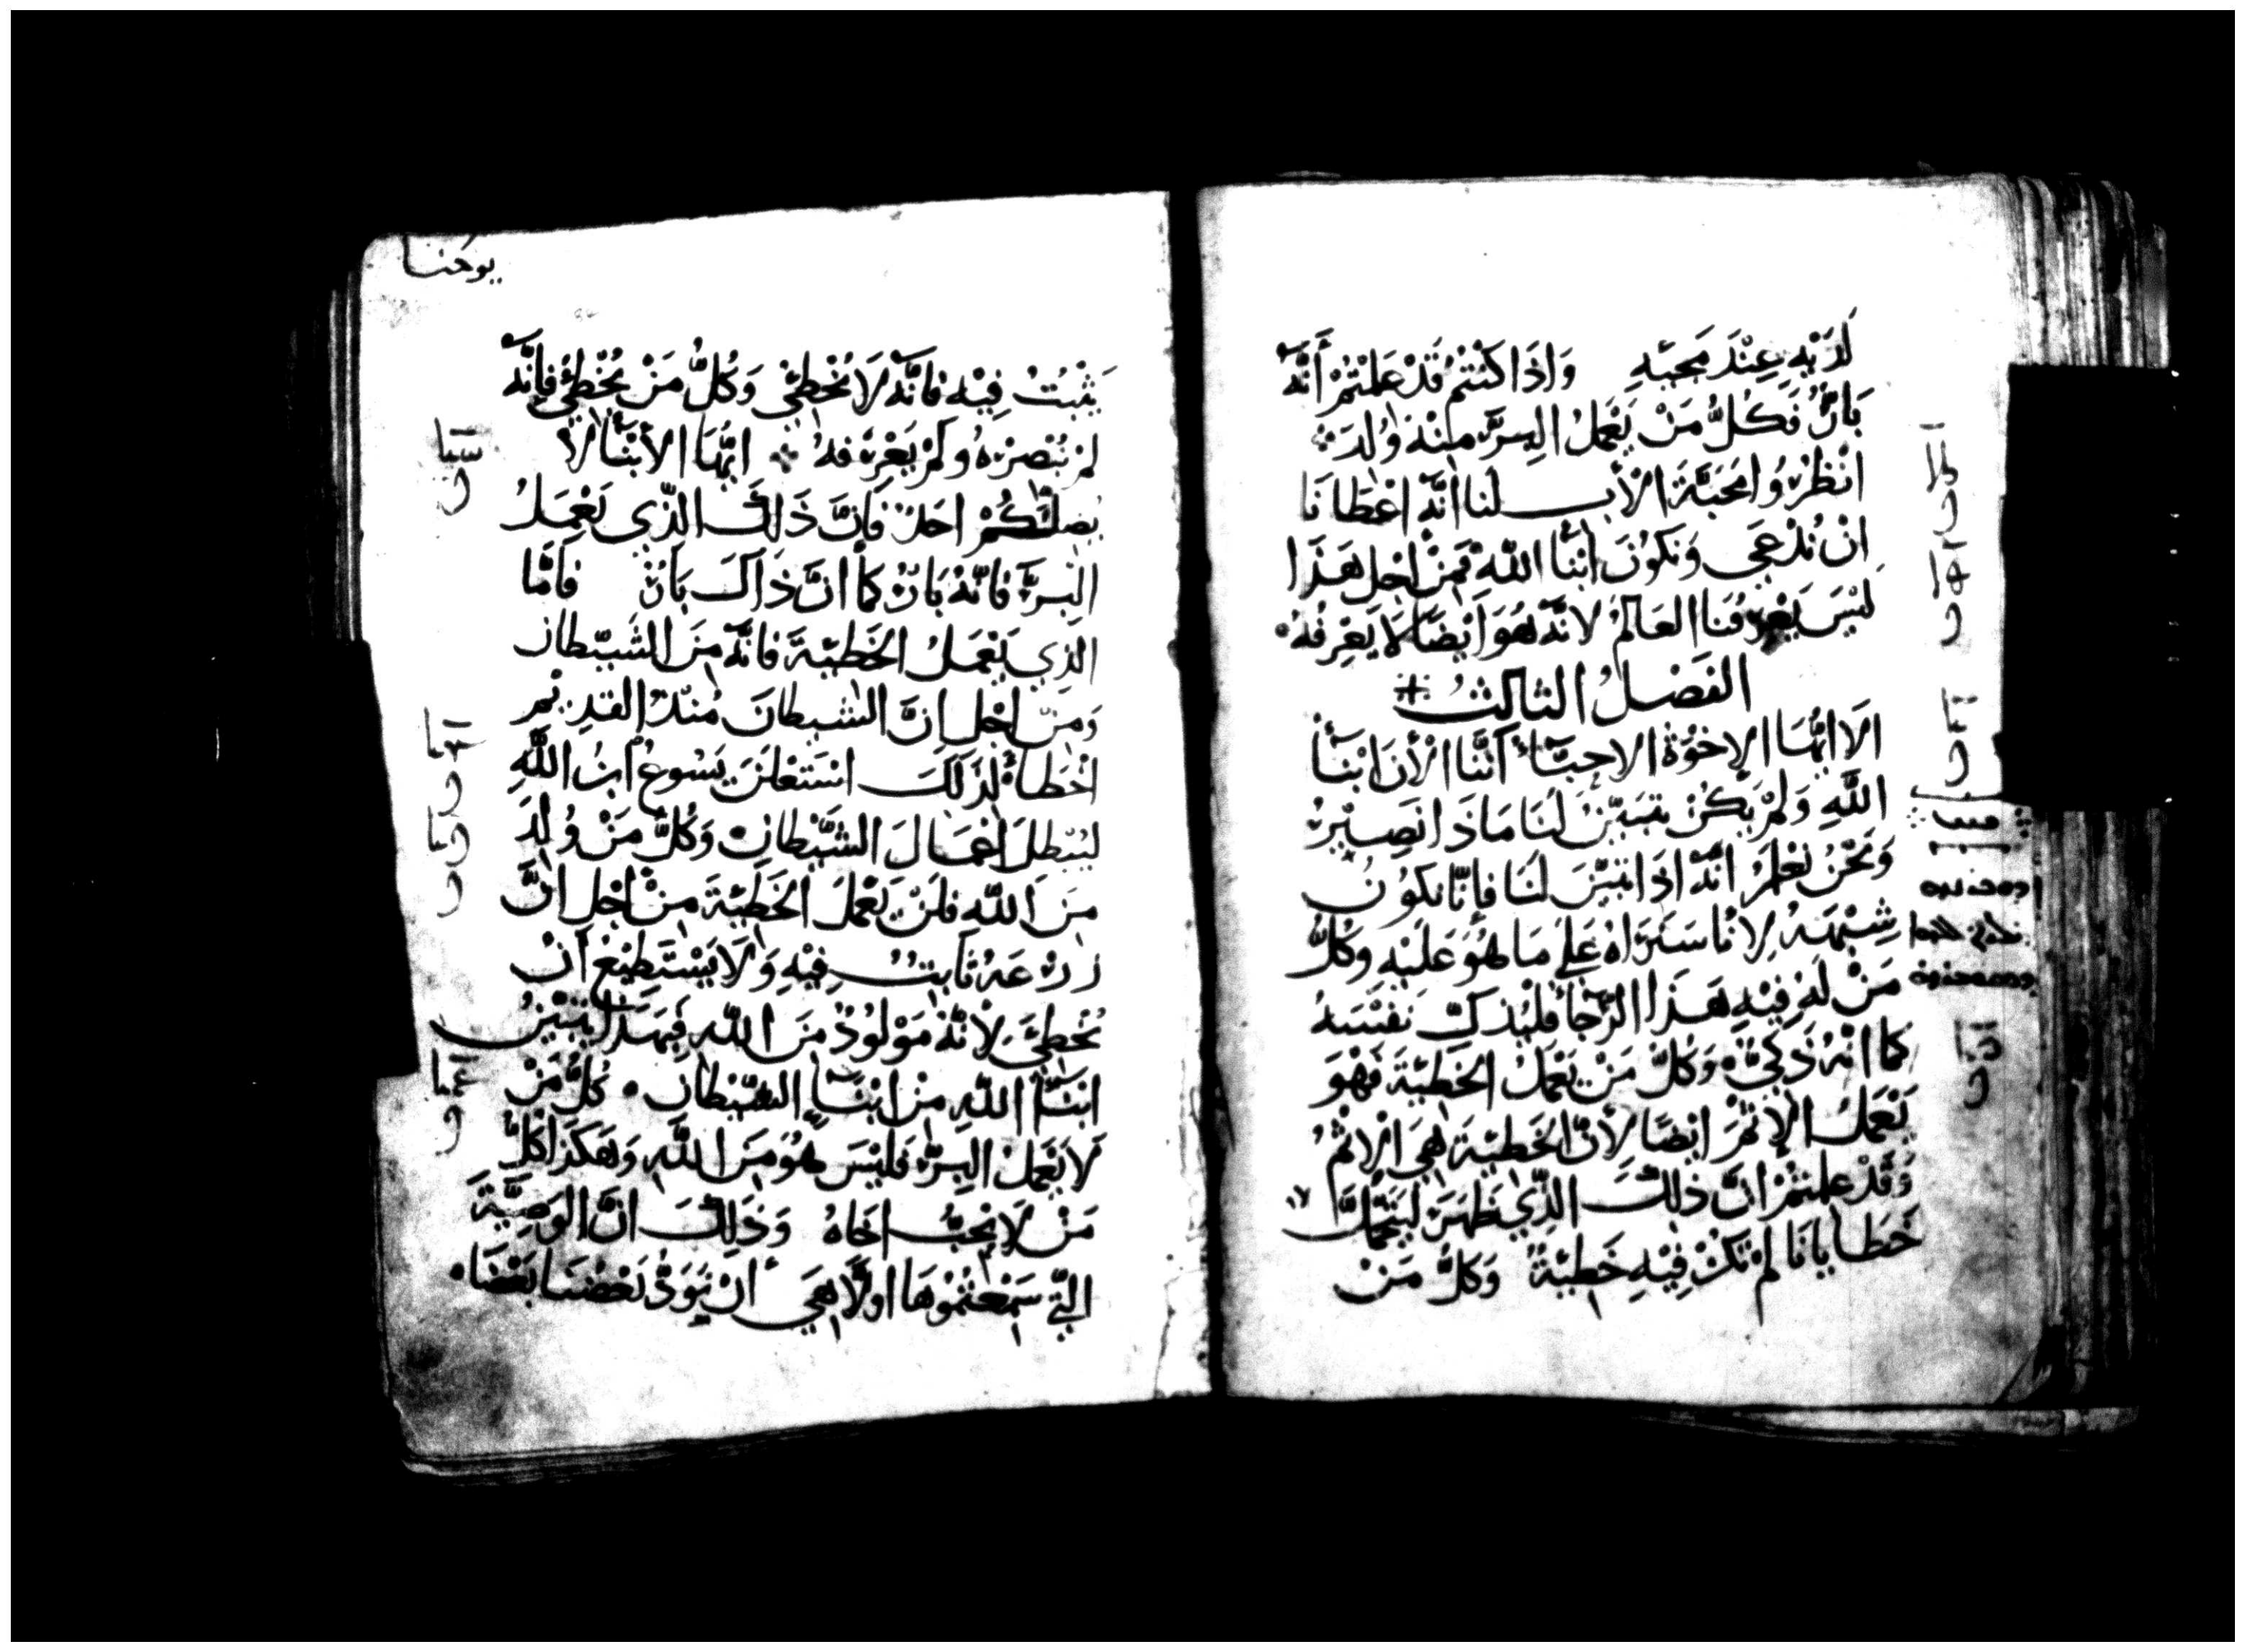 لَدَيْهِ عِنْدَ مَجِيّهِ وَاذَا كُنْتُمْ قَدْ عَلِمْتُمْ أَنَّهُ
بَارٌّ فَكُلُّ مَنْ يَعْمَلُ البِرَّ مِنْهُ وُلِدَ
انْظُرُوا مَحَبَّةَ الأَبِ لَنا انَّهُ اعْطَانَا
انْ نُدْعَي وَنَكُونَ ابْنَأ اللّهِ فَمِنْ اجْلِ هَذَا
لَيْسَ يَعْرِفُنَا العَالَمُ لانَّهُ هُوَ ايْضًا لَا يَعْرِفُهُ
الفَصْلُ الثالِثُ
الَا ايُّهَا الإخْوَةُ الاحِبَّاءُ انَّنَا الأنَ ابْنَأ
اللَّهِ وَلَمْ يَكُنْ تبَيَّنَ لَنَا مَاذَا نَصِيْرُ
وَنَحْنُ نَعْلَمُ انَّهُ اذَا تبَيَّنَ لَنَا فإنّا نكوُنُ
شِبْهَهُ لانّا سَنَرَاهُ عَلَي مَا هُوَ عَلَيْهِ وَكُلُّ
مَنْ لَهُ فِيْهِ هَذَا الرَّجَأ فَلْيُذَكِّ نَفْسَهُ
كَمَا انَّهُ ذَكِيٌّ وَكُلُّ مَنْ يَعْمَلُ الخَطِيَّةَ فَهْوَ
يَعْمَلُ الإثْمَ ايْضًا لأنَّ الخَطِيَّةَ هِيَ الإثْمُ
وَقَدْ عَلِمْتُمْ انَّ ذلِكَ الذِّي ظَهَرَ لِيَتَحَمَّلَ
خَطايانَا لَمْ تَكُنْ فِيْهِ خَطِيَّةٌ وَكُلُّ مَنْ
يوحنا
يَثْبُتُ فِيْهِ فَانَّهُ لَا يُخْطِئ وَكُلُّ مَنْ يُخْطِئ فَانَّهُ
لَمْ يُبْصِرْهُ وَلَمْ يَعْرِفْهُ ايُّهَا الأبْنَأ لا
يُضِلَّنَّكُمْ احَدٌ فَانَّ ذَلِكَ الذِّي يَعْمَلُ
البِرَّ فَانَّهُ بَارٌّ كَمَا انَّ ذَاكَ بَارٌّ فَامَّا
الذي يَعْمَلُ الخَطِيَّةَ فَانَّهُ مِنَ الشَّيْطانِ
وَمِنْ اجْلِ انَّ الشَّيطانَ مُنْذُ القَدِيْمِ
اخْطَأ لِذَلِكَ اسْتَعْلَنَ يَسُوعُ ابْنُ اللَّهِ
لِيُبْطِلَ اعْمَالَ الشَّيْطَانِ وَكُلُّ مَنْ وُلِدَ
مِنَ اللّهِ فَلَنْ يَعْمَلَ الخَطِيَّةَ مِنْ اجْلِ انَّ
زَرْعَهُ ثَابِتٌ فِيْهِ وَلَا يَسْتَطِيْعُ انْ
يُخْطِئَ لأنَّهُ مَوْلُودٌ مِنَ اللّهِ فَبِهَذَا يتبَيَّنُ
ابْنَأ اللّهِ مِنْ ابْنَأ الشَّيْطانِ كُلُّ مَنْ
لَا يَعْمَلُ البِرَّ فَلَيْسَ هُوَ مِنَ اللّهِ وَهَكَذَا كُلُّ
مَنْ لَا يُحِبُّ اخَاهُ وَذَلِكَ انَّ الوَصِيَّةَ
التِّي سَمِعْتُمُوهَا اولًا هِيَ انْ يَوَدَّ بَعْضُنا بَعْضًا